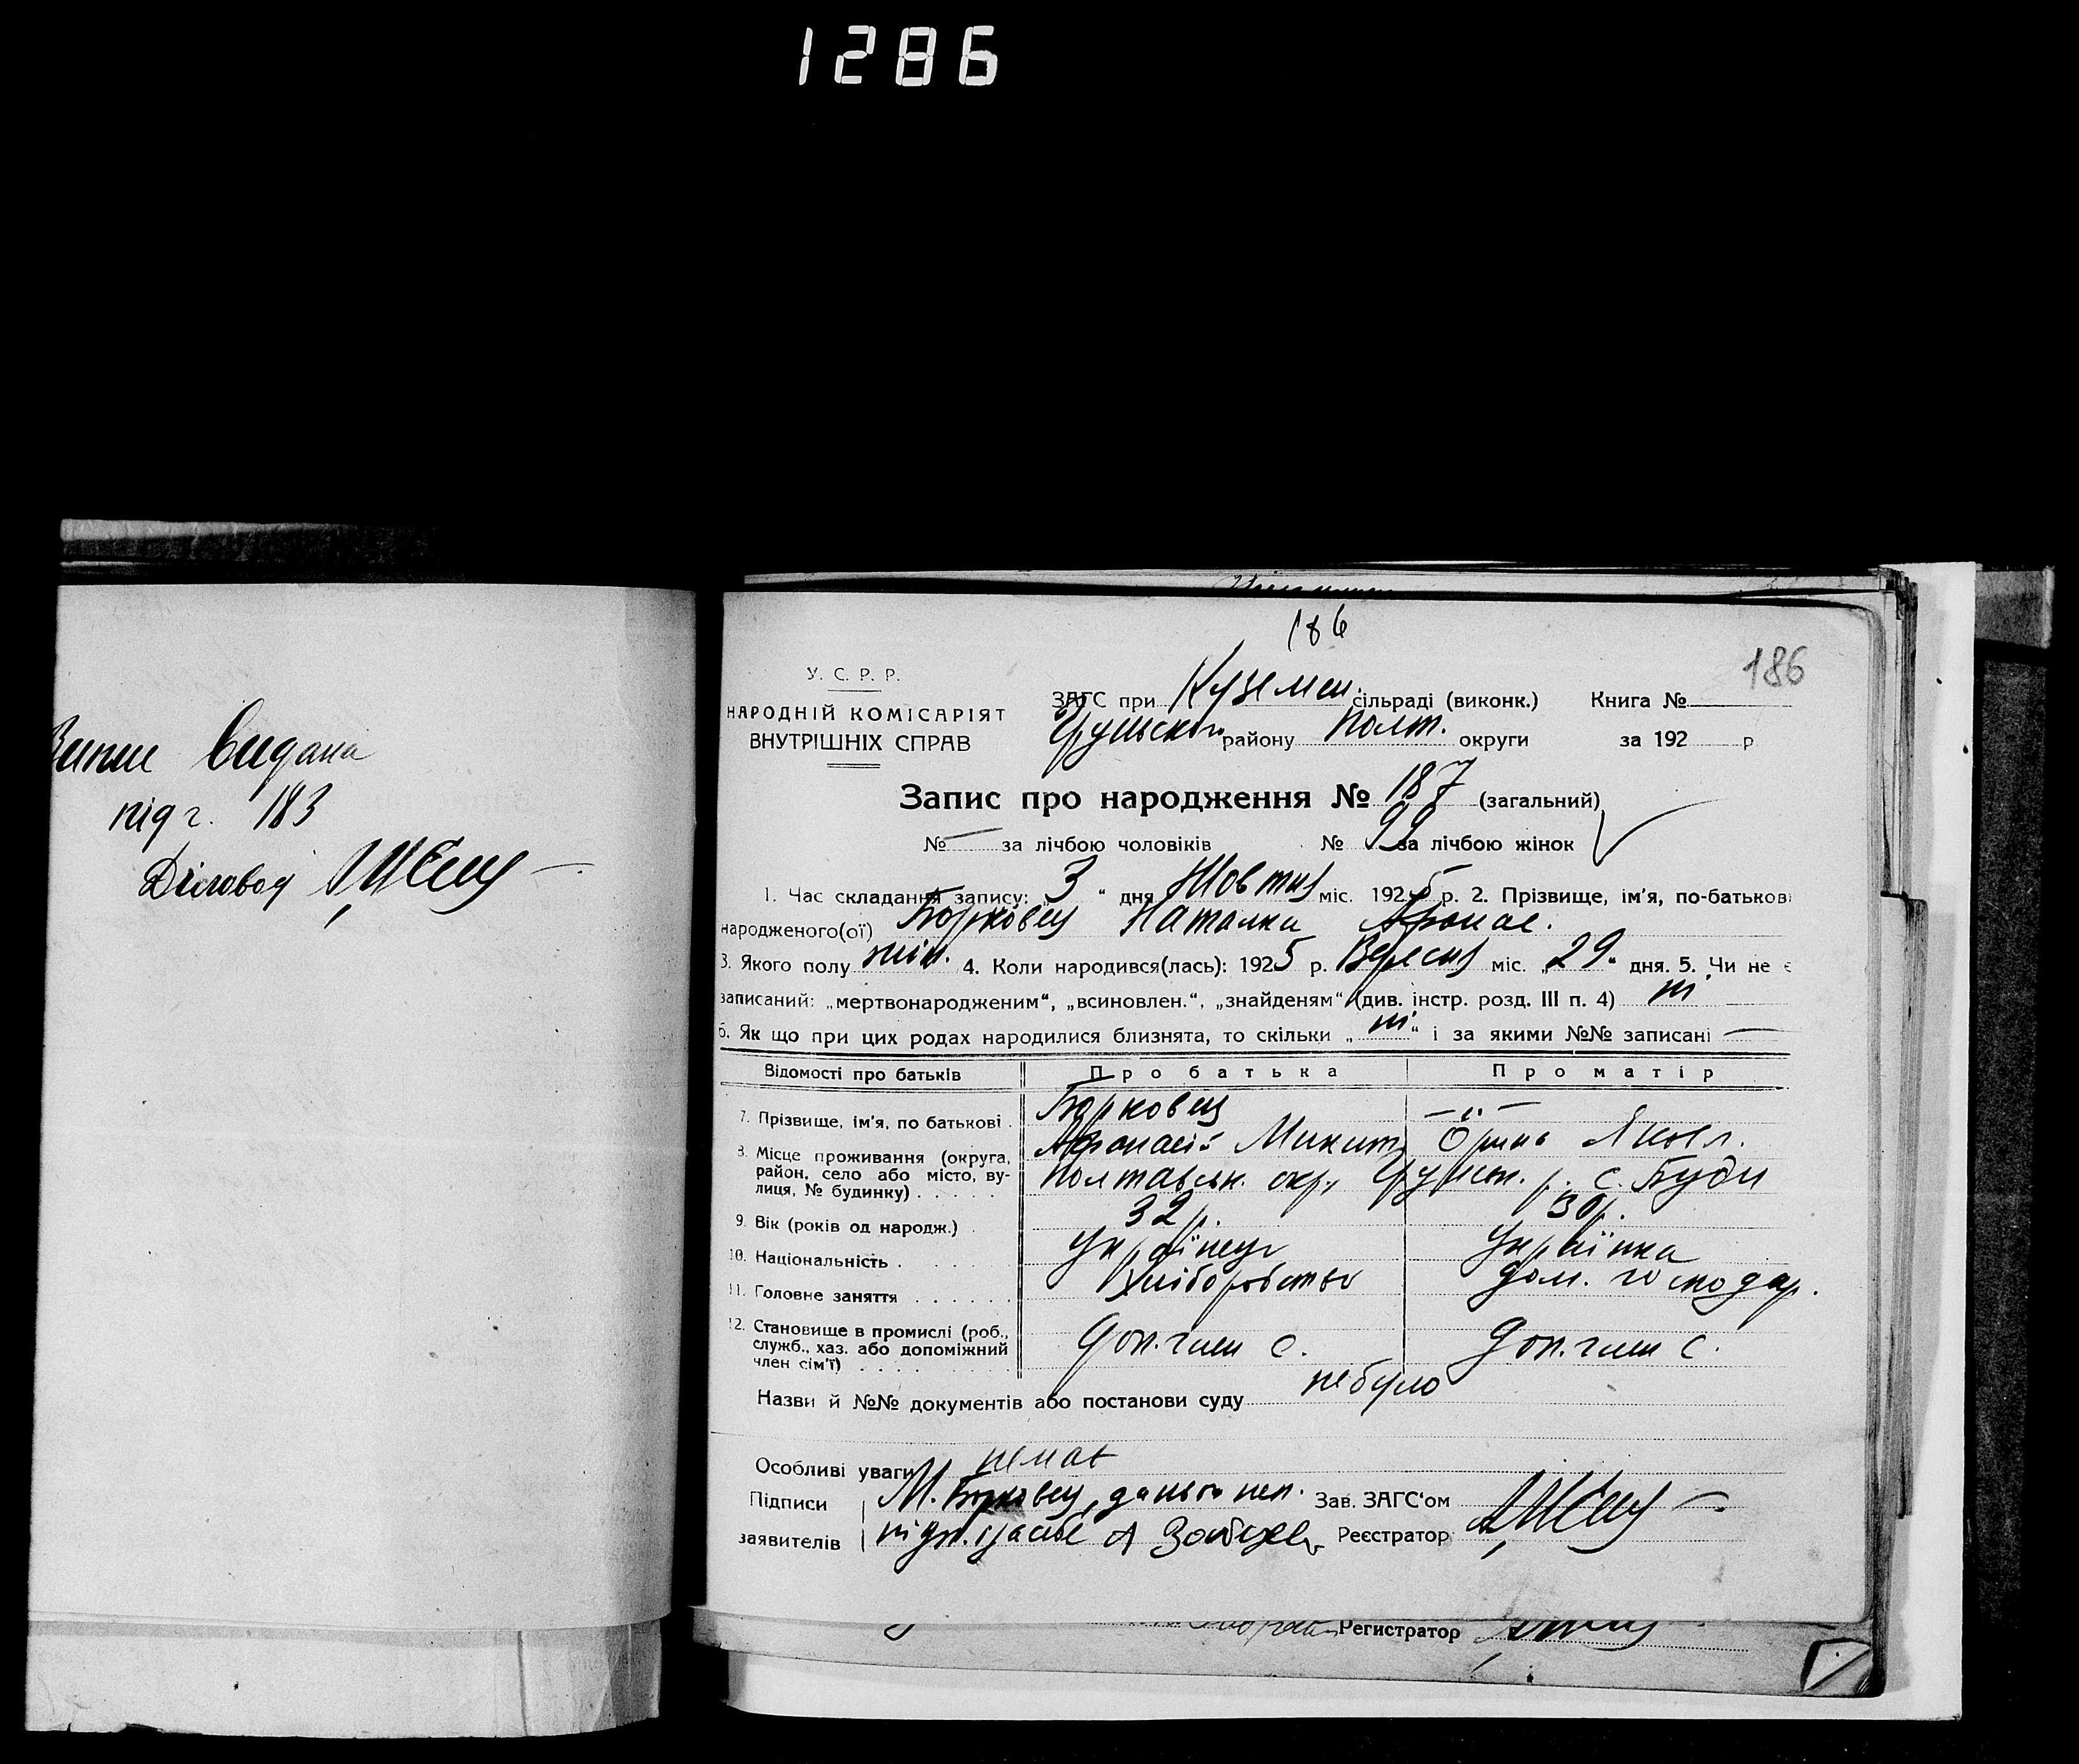 1286
Випис видана
під ч. 183
Діловод
186
186
У. С. Р. Р.
НАРОДНІЙ КОМІСАРІЯТ
ВНУТРІШНІХ СПРАВ
ЗАГС при Куземен. сільраді (виконк.) Книга №
Грунського району Полт. округи за 192 р
Запис про народження № 187 (загальний)
№ — за лічбою чоловіків № 99 за лічбою жінок
1. Час складання запису: „3" дня Жовтня міс. 1925 р. 2. Прізвище, ім'я, по-батькові
народженого(ої) Борковец Наталка Афонас.
3. Якого полу жін. 4. Коли народився(лась): 1925 р. Вересня міс. „29" дня. 5. Чи не є
записаний: „мертвонародженим", „всиновлен.", „знайденям" (див. інстр. розд. III п. 4) ні
6. Як що при цих родах народилися близнята, то скільки „ні" і за якими №№ записані —
Відомості про батьків Про батька Про матір
7. Прізвище, ім'я, по батькові . Борковец — " —
Афонасій Микит. Орина Яковл.
8. Місце проживання (округа, район, село або місто, ву-
лиця, № будинку) . . . . . Полтавськ. окр., Грунськ. р. с. Буди
9. Вік (років од народж.) . 32 р. 30 р.
10. Національність . . . . . Українець Українка
11. Головне заняття . . . . . . Хліборобство дом. господар.
12. Становище в промислі (роб.,
служб., хаз. або допоміжний
член сім'ї) . . . . . Доп. член с. Доп. член с.
Назви й №№ документів або постанови суду не було
Особливі уваги немає
Підписи М. Борковец, а за його неп. Зав. ЗАГС'ом
заявителів підп. і за себе А Реєстратор
Регистратор